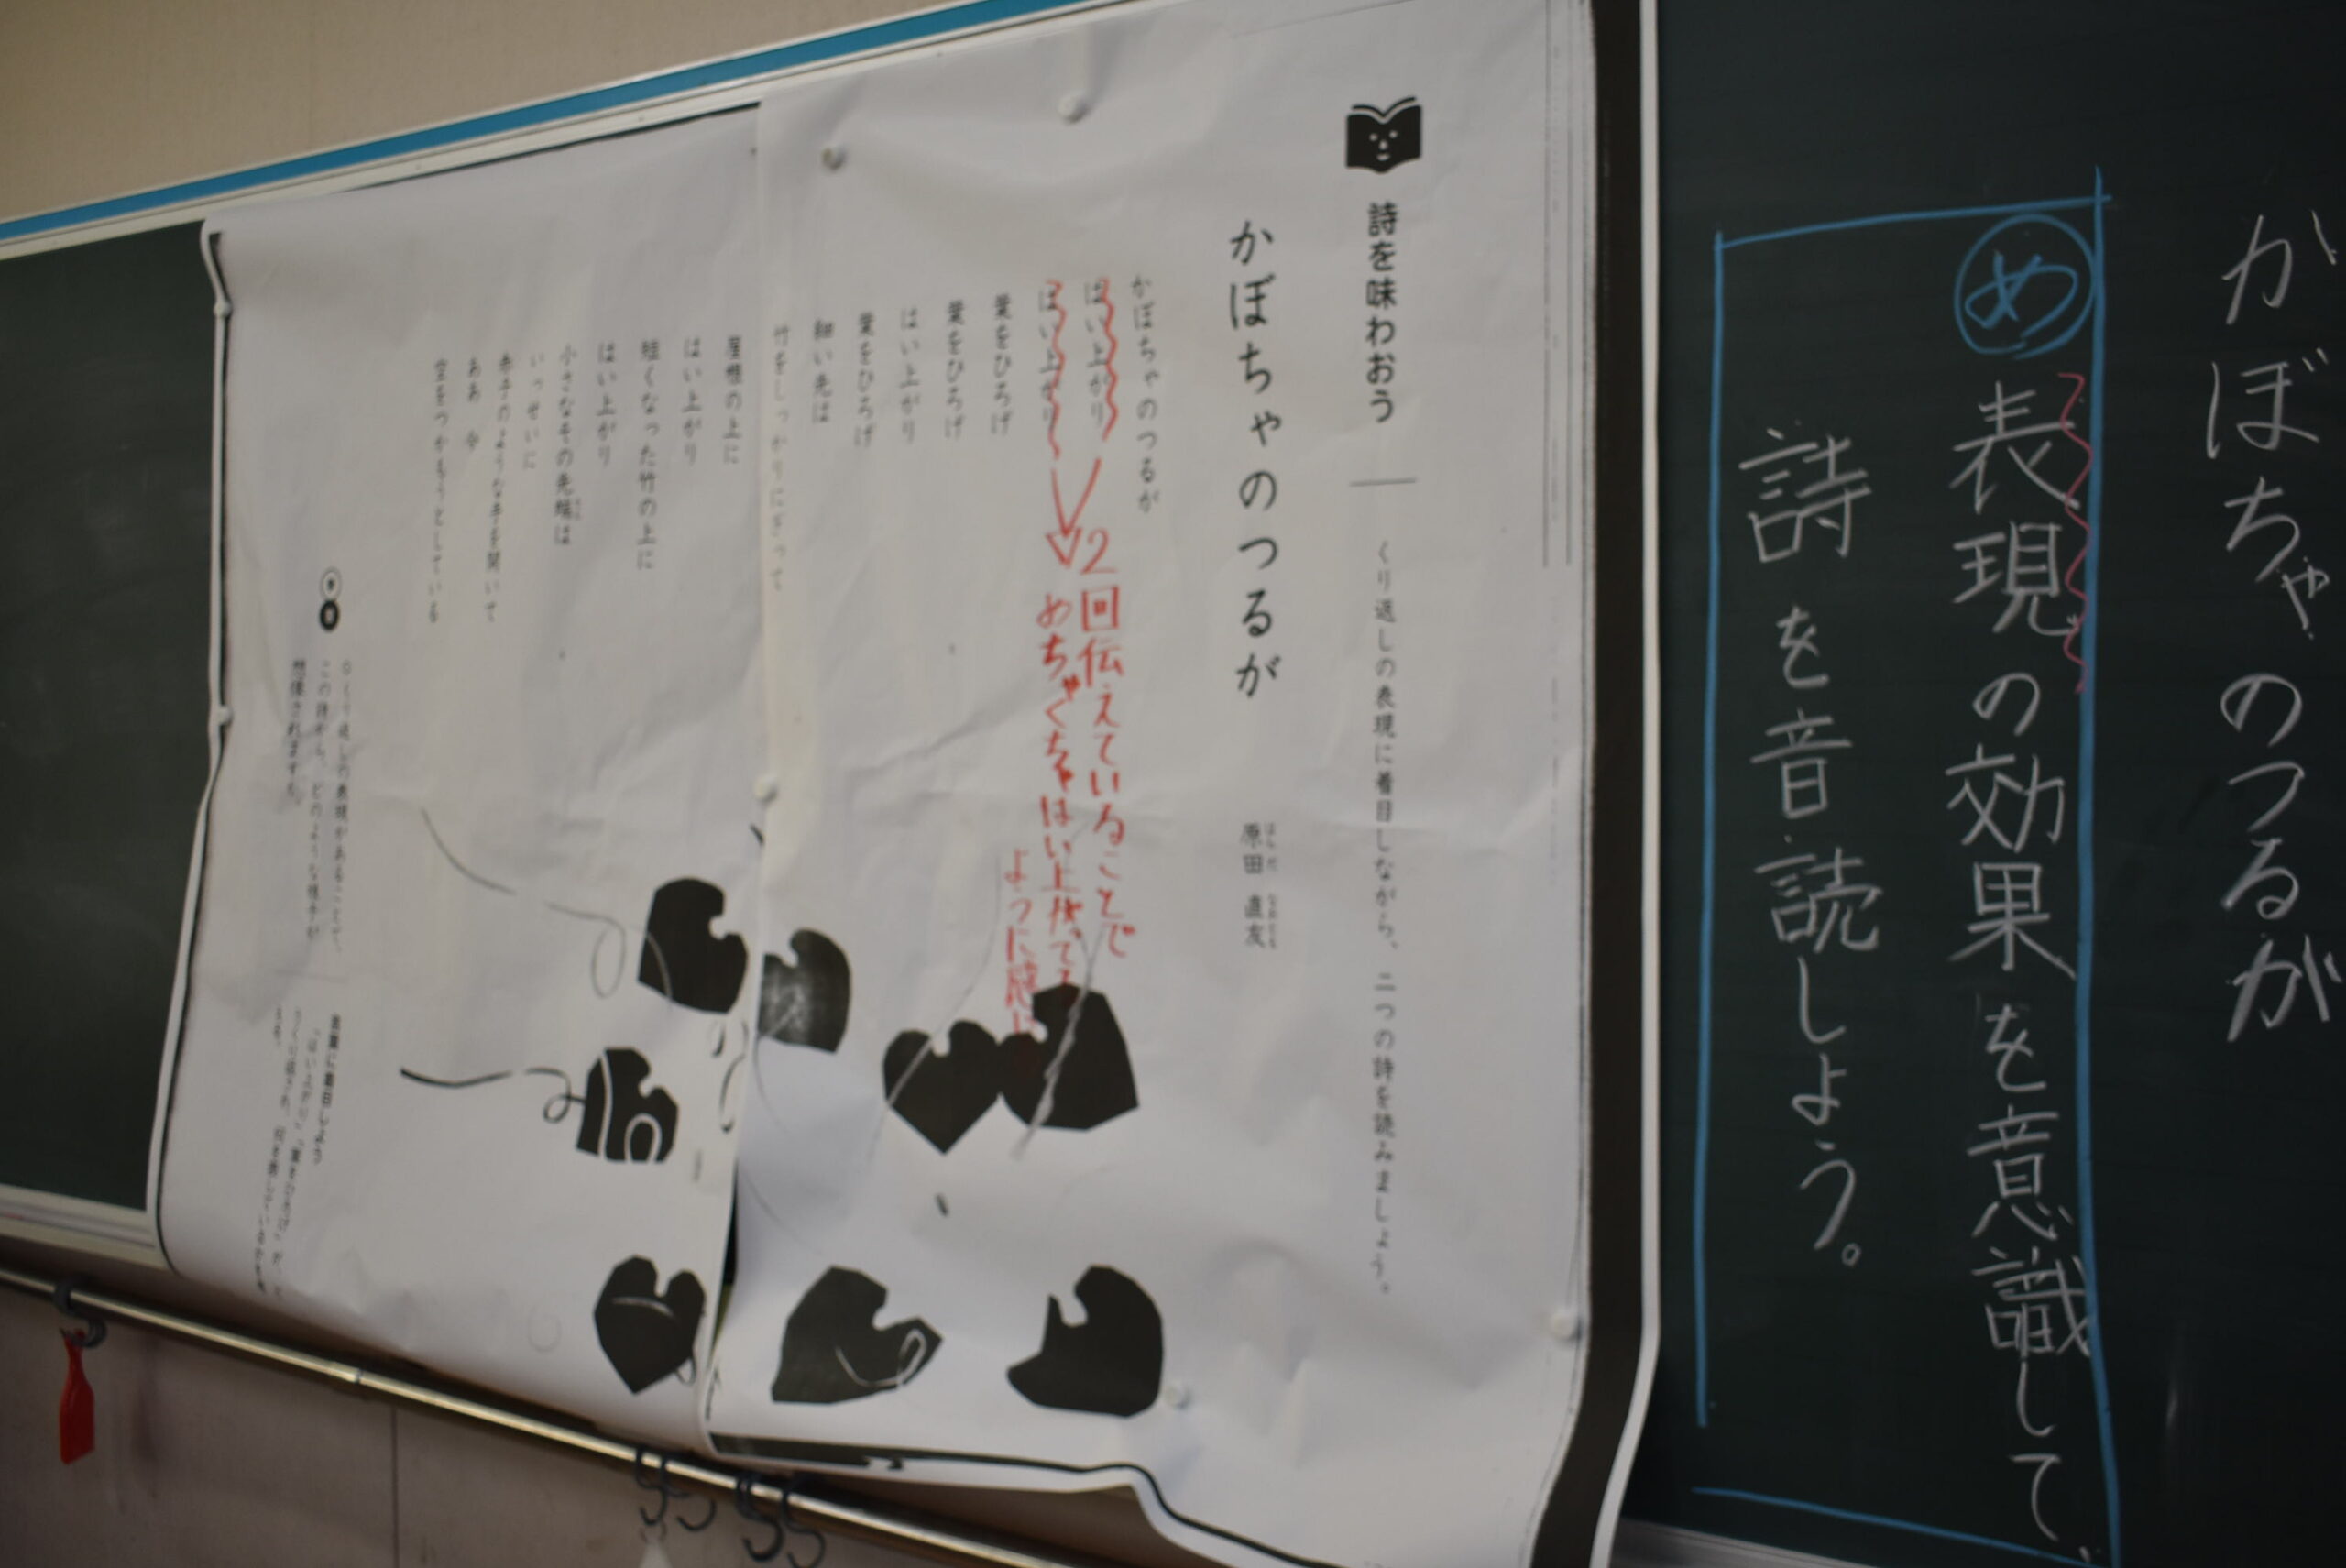 かぼちゃのつるが
め
表現の効果を意識して、
詩を音読しよう。
詩を味わおう
くり返しの表現に着目しながら、二つの詩を読みましょう。
かぼちゃのつるが
原田 直友
はらだ なおとも
かぼちゃのつるが
はい上がり
はい上がり
葉をひろげ
葉をひろげ
はい上がり
葉をひろげ
細い先は
竹をしっかりにぎって
屋根の上に
はい上がり
短くなった竹の上に
はい上がり
小さなその先端は
いっせいに
赤子のような手を開いて
ああ 今
空をつかもうとしている
2回伝えていることで
めちゃくちゃはい上がってる
ように感じ
くり返しの表現があることで、
この詩から、どのような様子が
想像されますか。
表現に着目しよう